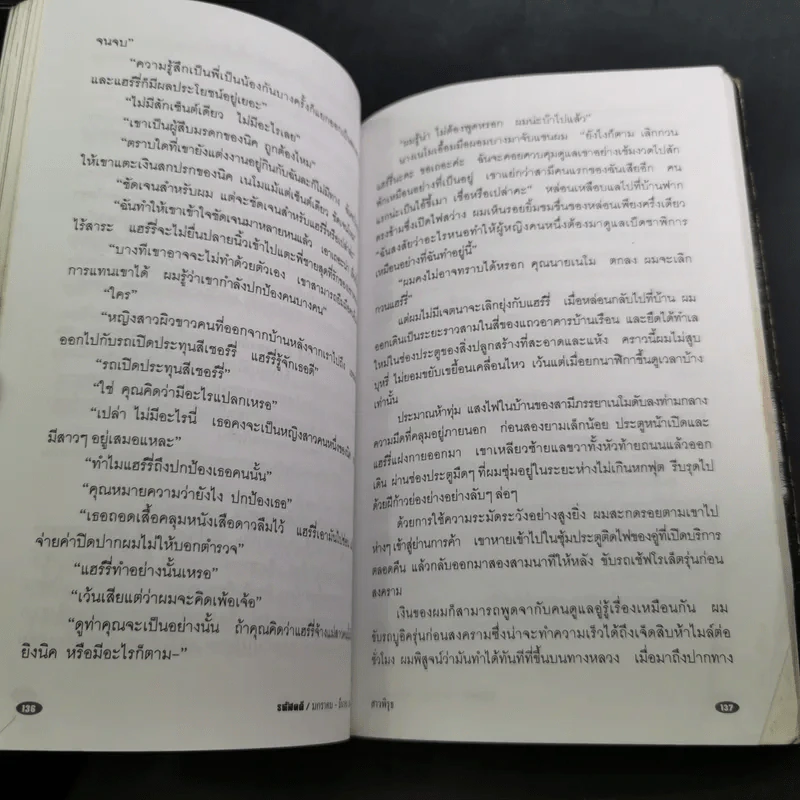 จนจบ”
“ความรู้สึกเป็นพี่เป็นน้องกันบางครั้งก็แยกออก
และแฮร์รี่ก็มีผลประโยชน์อยู่เยอะ”
“ไม่มีสักเซ็นต์เดียว ไม่มีอะไรเลย”
“เขาเป็นผู้สืบมรดกของนิค ถูกต้องไหม”
“ตราบใดที่เขายังแต่งงานอยู่กินกับฉันละก็ไม่มีทาง
ให้เขาแตะเงินสกปรกของนิค เนโมแม้แต่เซ็นต์เดียว
“ชัดเจนสำหรับผม แต่จะชัดเจนสำหรับแฮร์รี่
“ฉันทำให้เขาเข้าใจชัดเจนมาหลายหนแล้ว
ไร้สาระ แฮร์รี่จะไม่ยื่นปลายนิ้วเข้าไปแตะพี่ชายสุดที่รัก
“บางทีเขาอาจจะไม่ทำด้วยตัวเอง เขาสามารถ
การแทนเขาได้ ผมรู้ว่าเขากำลังปกป้องคนบางคน”
“ใคร”
“หญิงสาวผิวขาวคนที่ออกจากบ้านหลังจากเราไปถึง
ออกไปกับรถเปิดประทุนสีเชอร์รี่ แฮร์รี่รู้จักเธอดี”
“รถเปิดประทุนสีเชอร์รี่”
“ใช่ คุณคิดว่ามีอะไรแปลกเหรอ”
“เปล่า ไม่มีอะไรนี่ เธอคงจะเป็นหญิงสาวคนหนึ่งของนิค
มีสาวๆ อยู่เสมอแหละ”
“ทำไมแฮร์รี่ถึงปกป้องเธอคนนั้น”
“คุณหมายความว่ายังไง ปกป้องเธอ”
“เธอถอดเสื้อคลุมหนังเสือดาวลืมไว้ แฮร์รี่เอามัน
จ่ายค่าปิดปากผมไม่ให้บอกตำรวจ”
“แฮร์รี่ทำอย่างนั้นเหรอ”
“เว้นเสียแต่ว่าผมจะคิดเพ้อเจ้อ”
“ดูท่าคุณจะเป็นอย่างนั้น ถ้าคุณคิดว่าแฮร์รี่จ้าง
ยิงนิค หรือมีอะไรก็ตาม–”
136
รหัสคดี / มกราคม -
“ผมรู้น่า ไม่ต้องพูดหรอก ผมน่ะบ้าไปแล้ว”
นางเนโมเอื้อมมือผอมบางมาจับแขนผม “ยังไงก็ตาม เลิกกวน
แฮร์รี่นะคะ ขอเถอะค่ะ ฉันจะคอยควบคุมดูแลเขาอย่างเข้มงวดไปสัก
พักเหมือนอย่างที่เป็นอยู่ เขาแย่กว่าสามีคนแรกของฉันเสียอีก คน
แรกน่ะเป็นไอ้ขี้เมา เชื่อหรือเปล่าคะ” หล่อนเหลือบแลไปที่บ้านฟาก
ตรงข้ามซึ่งเปิดไฟสว่าง ผมเห็นรอยยิ้มขมขื่นของหล่อนเพียงครึ่งเดียว
“ฉันสงสัยว่าอะไรหนอทำให้ผู้หญิงคนหนึ่งต้องมาดูแลเบ๊ดขาพิการ
เหมือนอย่างที่ฉันทำอยู่นี้”
“ผมคงไม่อาจทราบได้หรอก คุณนายเนโม ตกลง ผมจะเลิก
กวนแฮร์รี่”
แต่ผมไม่มีเจตนาจะเลิกยุ่งกับแฮร์รี่ เมื่อหล่อนกลับไปที่บ้าน ผม
ออกเดินเป็นระยะราวสามในสี่ของแถวอาคารบ้านเรือน และยึดได้ทำเล
ใหม่ในช่องประตูของสิ่งปลูกสร้างที่สะอาดและแห้ง คราวนี้ผมไม่สูบ
บุหรี่ ไม่ยอมขยับเขยื้อนเคลื่อนไหว เว้นแต่เมื่อยกนาฬิกาขึ้นดูเวลาบ้าง
เท่านั้น
ประมาณห้าทุ่ม แสงไฟในบ้านของสามีภรรยาเนโมดับลงท่ามกลาง
ความมืดที่คลุมอยู่ภายนอก ก่อนสองยามเล็กน้อย ประตูหน้าเปิดและ
แฮร์รี่แฝงกายออกมา เขาเหลียวซ้ายแลขวาทั้งหัวท้ายถนนแล้วออก
เดิน ผ่านช่องประตูมืดๆ ที่ผมซุ่มอยู่ในระยะห่างไม่เกินหกฟุต รีบรุดไป
ด้วยฝีก้าวย่องย่างอย่างลับๆ ล่อๆ
ด้วยการใช้ความระมัดระวังอย่างสูงยิ่ง ผมสะกดรอยตามเขาไป
ห่างๆ เข้าสู่ย่านการค้า เขาหายเข้าไปในซุ้มประตูติดไฟของอู่ที่เปิดบริการ
ตลอดคืน แล้วกลับออกมาสองสามนาทีให้หลัง ขับรถเชฟโรเล็ตรุ่นก่อน
สงคราม
เงินของผมก็สามารถพูดจากับคนดูแลอู่รู้เรื่องเหมือนกัน ผม
ขับรถบูอิครุ่นก่อนสงครามซึ่งน่าจะทำความเร็วได้ถึงเจ็ดสิบห้าไมล์ต่อ
ชั่วโมง ผมพิสูจน์ว่ามันทำได้ทันทีที่ขึ้นบนทางหลวง เมื่อมาถึงปากทาง
สาวพิรุธ
137